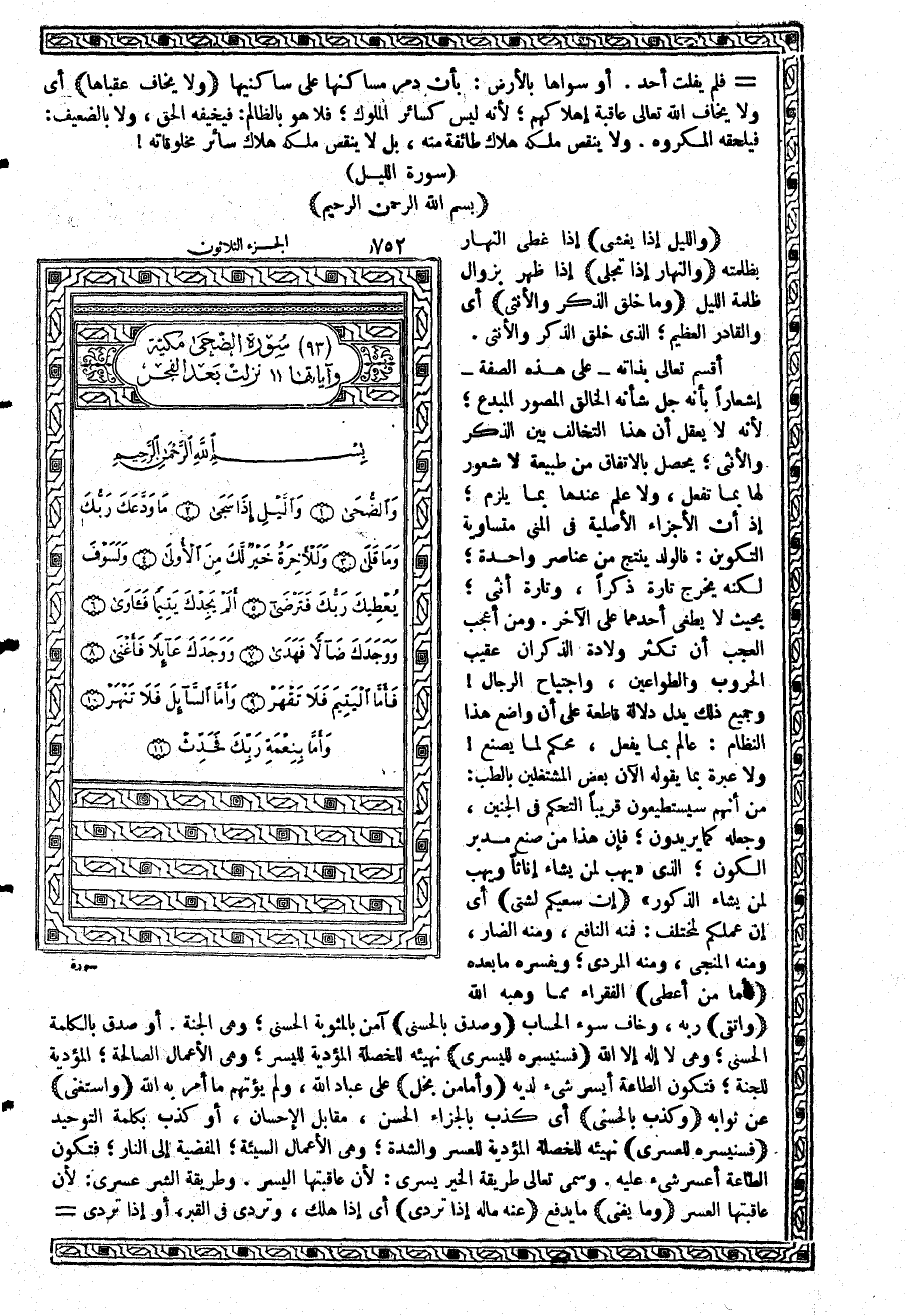 = فلم يفلت أحد . أو سواها بالأرض : بأن دمر مساكنها على ساكنيها (ولا يخاف عقباها) أى
ولا يخاف الله تعالى عاقبة إهلاكهم ؛ لأنه ليس كسائر الملوك ؛ فلا هو بالظالم: فيخيفه الحق ، ولا بالضعيف:
فيلحقه المكروه . ولا ينقص ملكه هلاك طائفة منه ، بل لا ينقص ملكه هلاك سائر مخلوقاته !
(سورة الليل)
(بسم الله الرحمن الرحيم)
(والليل إذا يغشى) إذا غطى النهار
بظلمته (والنهار إذا تجلى) إذا ظهر بزوال
ظلمة الليل (وما خلق الذكر والأنثى) أى
والقادر العظيم ؛ الذى خلق الذكر والأنثى .
أقسم تعالى بذاته – على هذه الصفة –
إشعاراً بأنه جل شأنه الخالق المصور المبدع ؛
لأنه لا يعقل أن هذا التخالف بين الذكر
والأنثى ؛ يحصل بالاتفاق من طبيعة لا شعور
لها بما تفعل ، ولا علم عندها بما يلزم ؛
إذ أن الأجزاء الأصلية فى المنى متساوية
التكوين : فالولد ينتج من عناصر واحدة ؛
لكنه يخرج تارة ذكراً ، وتارة أنثى ؛
بحيث لا يطغى أحدهما على الآخر . ومن أعجب
العجب أن تكثر ولادة الذكران عقيب
الحروب والطواعين ، واجتياح الرجال !
وجميع ذلك يدل دلالة قاطعة على أن واضع هذا
النظام : عالم بما يفعل ، محكم لما يصنع !
ولا عبرة بما يقوله الآن بعض المشتغلين بالطب:
من أنهم سيستطيعون قريباً التحكم فى الجنين ،
وجعله كما يريدون ؛ فإن هذا من صنع مدبر
الكون ؛ الذى «يهب لمن يشاء إناثاً ويهب
لمن يشاء الذكور» (إن سعيكم لشتى) أى
إن عملكم لمختلف : فمنه النافع ، ومنه الضار ،
ومنه المنجى ، ومنه المردى ؛ ويفسره ما بعده
(فأما من أعطى) الفقراء مما وهبه الله
٧٥٢ الجزء الثلاثون
(٩٣) سُورَةُ الضُّحَى مَكِيَّة
وَآيَاتُهَا ١١ نَزَلَتْ بَعْدَ الفَجْرِ
بِسْمِ اللَّهِ الرَّحْمَٰنِ الرَّحِيمِ
وَٱلضُّحَىٰ ١ وَٱلَّيْلِ إِذَا سَجَىٰ ٢ مَا وَدَّعَكَ رَبُّكَ
وَمَا قَلَىٰ ٣ وَلَلْأَخِرَةُ خَيْرٌ لَّكَ مِنَ ٱلْأُولَىٰ ٤ وَلَسَوْفَ
يُعْطِيكَ رَبُّكَ فَتَرْضَىٰٓ ٥ أَلَمْ يَجِدْكَ يَتِيمًا فَـَٔاوَىٰ ٦
وَوَجَدَكَ ضَآلًّا فَهَدَىٰ ٧ وَوَجَدَكَ عَآئِلًا فَأَغْنَىٰ ٨
فَأَمَّا ٱلْيَتِيمَ فَلَا تَقْهَرْ ٩ وَأَمَّا ٱلسَّآئِلَ فَلَا تَنْهَرْ ١٠
وَأَمَّا بِنِعْمَةِ رَبِّكَ فَحَدِّثْ ١١
سورة
(واتقى) ربه ، وخاف سوء الحساب (وصدق بالحسنى) آمن بالمثوبة الحسنى ؛ وهى الجنة . أو صدق بالكلمة
الحسنى ؛ وهى لا إله إلا الله (فسنيسره لليسرى) نهيئه للخصلة المؤدية لليسر ؛ وهى الأعمال الصالحة ؛ المؤدية
للجنة ؛ فتكون الطاعة أيسر شىء لديه (وأما من بخل) على عباد الله ، ولم يؤتهم ما أمر به الله (واستغنى)
عن ثوابه (وكذب بالحسنى) أى كذب بالجزاء الحسن ، مقابل الإحسان ، أو كذب بكلمة التوحيد
(فسنيسره للعسرى) نهيئه للخصلة المؤدية للعسر والشدة ؛ وهى الأعمال السيئة ؛ المفضية إلى النار ؛ فتكون
الطاعة أعسر شىء عليه . وسمى تعالى طريقة الخير يسرى : لأن عاقبتها اليسر . وطريقة الشر عسرى: لأن
عاقبتها العسر (وما يغنى) ما يدفع (عنه ماله إذا تردى) أى إذا هلك ، وتردى فى القبر، أو إذا تردى =